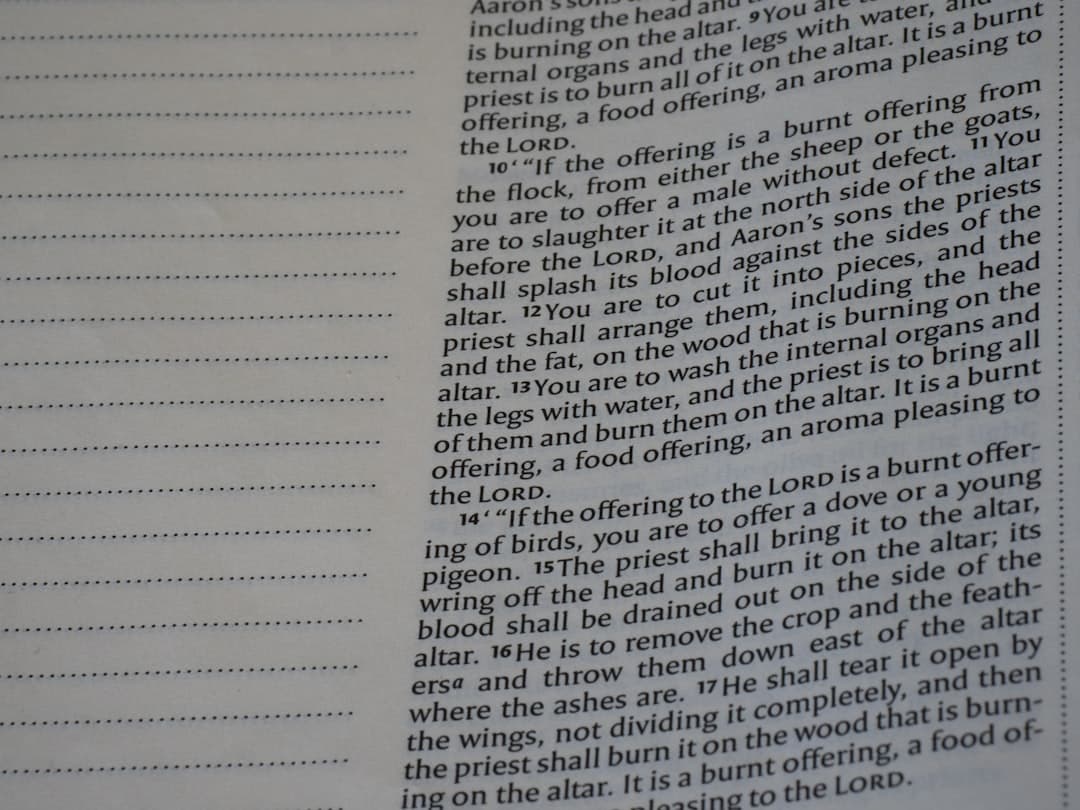 Aaron's sons
including the head and
is burning on the altar. 9 You are
ternal organs and the legs with water, and
priest is to burn all of it on the altar. It is a burnt
offering, a food offering, an aroma pleasing to
the LORD.
10 ‘ “If the offering is a burnt offering from
the flock, from either the sheep or the goats,
you are to offer a male without defect. 11 You
are to slaughter it at the north side of the altar
before the LORD, and Aaron’s sons the priests
shall splash its blood against the sides of the
altar. 12 You are to cut it into pieces, and the
priest shall arrange them, including the head
and the fat, on the wood that is burning on the
altar. 13 You are to wash the internal organs and
the legs with water, and the priest is to bring all
of them and burn them on the altar. It is a burnt
offering, a food offering, an aroma pleasing to
the LORD.
14 ‘ “If the offering to the LORD is a burnt offer-
ing of birds, you are to offer a dove or a young
pigeon. 15 The priest shall bring it to the altar,
wring off the head and burn it on the altar; its
blood shall be drained out on the side of the
altar. 16 He is to remove the crop and the feath-
ersa and throw them down east of the altar
where the ashes are. 17 He shall tear it open by
the wings, not dividing it completely, and then
the priest shall burn it on the wood that is burn-
ing on the altar. It is a burnt offering, a food of-
pleasing to the LORD.